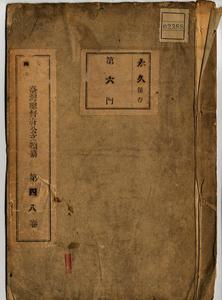 永久保存
第六門
臺灣總督府公文類纂 第四八卷